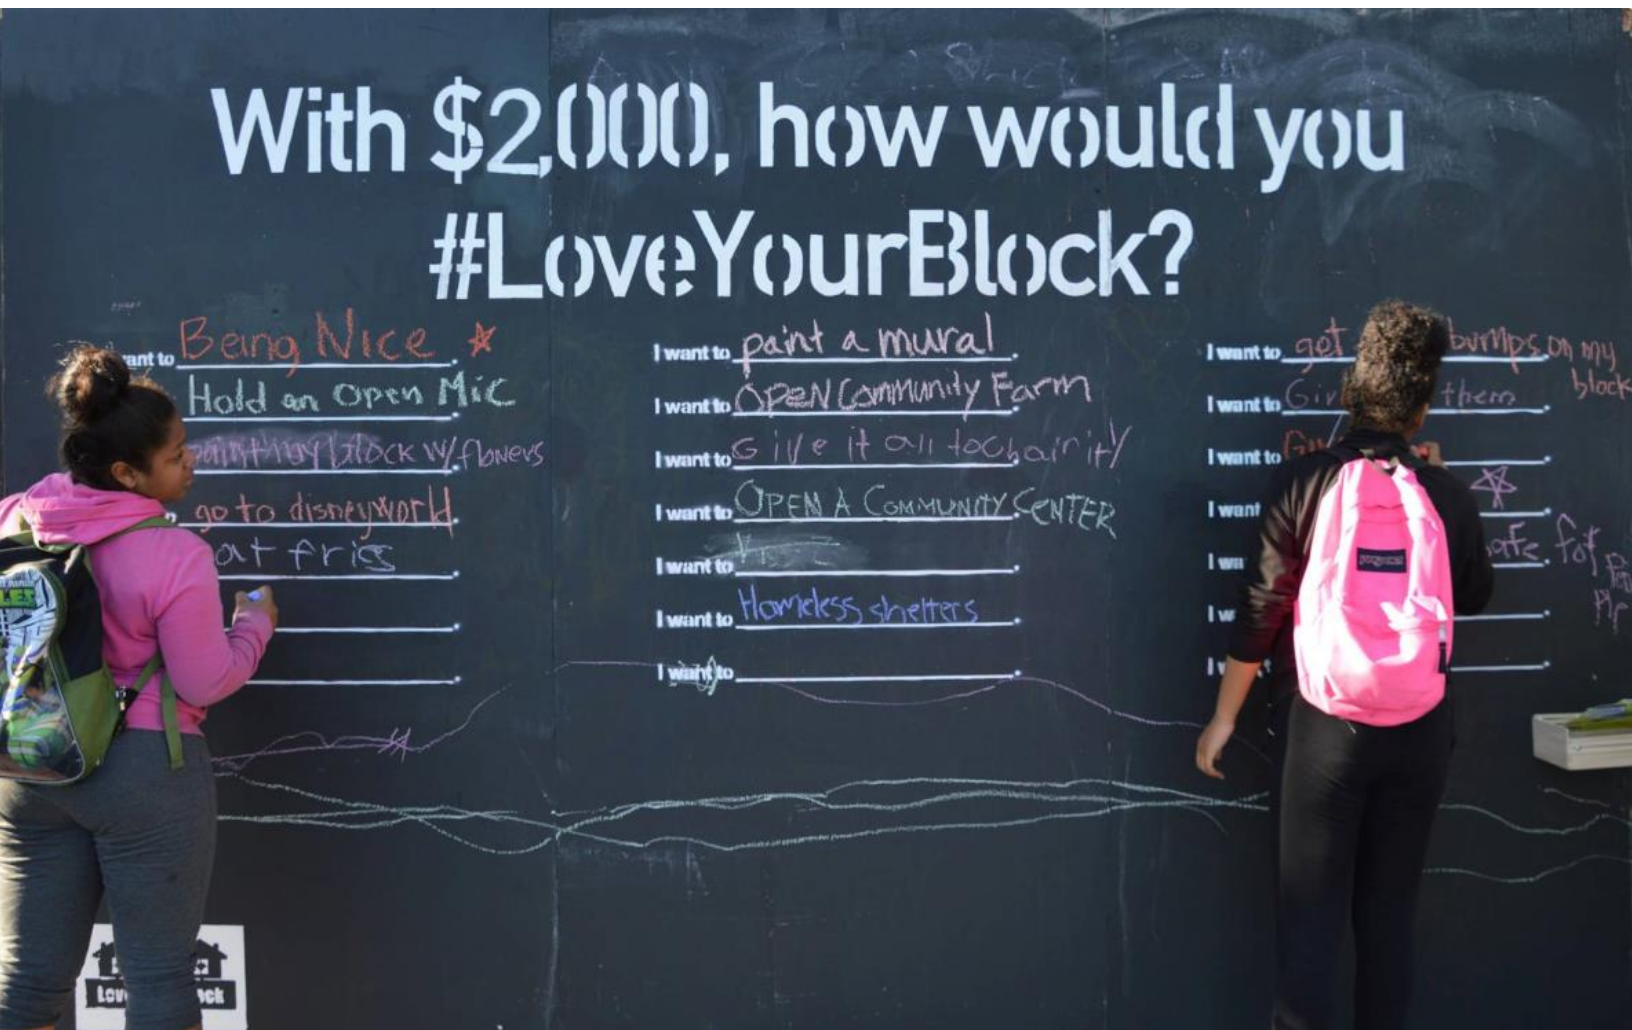 With $2,000, how would you
#LoveYourBlock?
want to Being Nice.
Hold an Open Mic
paint my block w/ flowers
go to disneyworld.
at fries.
I want to paint a mural.
I want to OPEN Community Farm
I want to Give it all to chairity
I want to OPEN A COMMUNITY CENTER
I want to
I want to Homeless shelters.
I want to
I want to get bumps on my block
I want to them.
I want to
I want
I
I
I
JANSPORT
Love